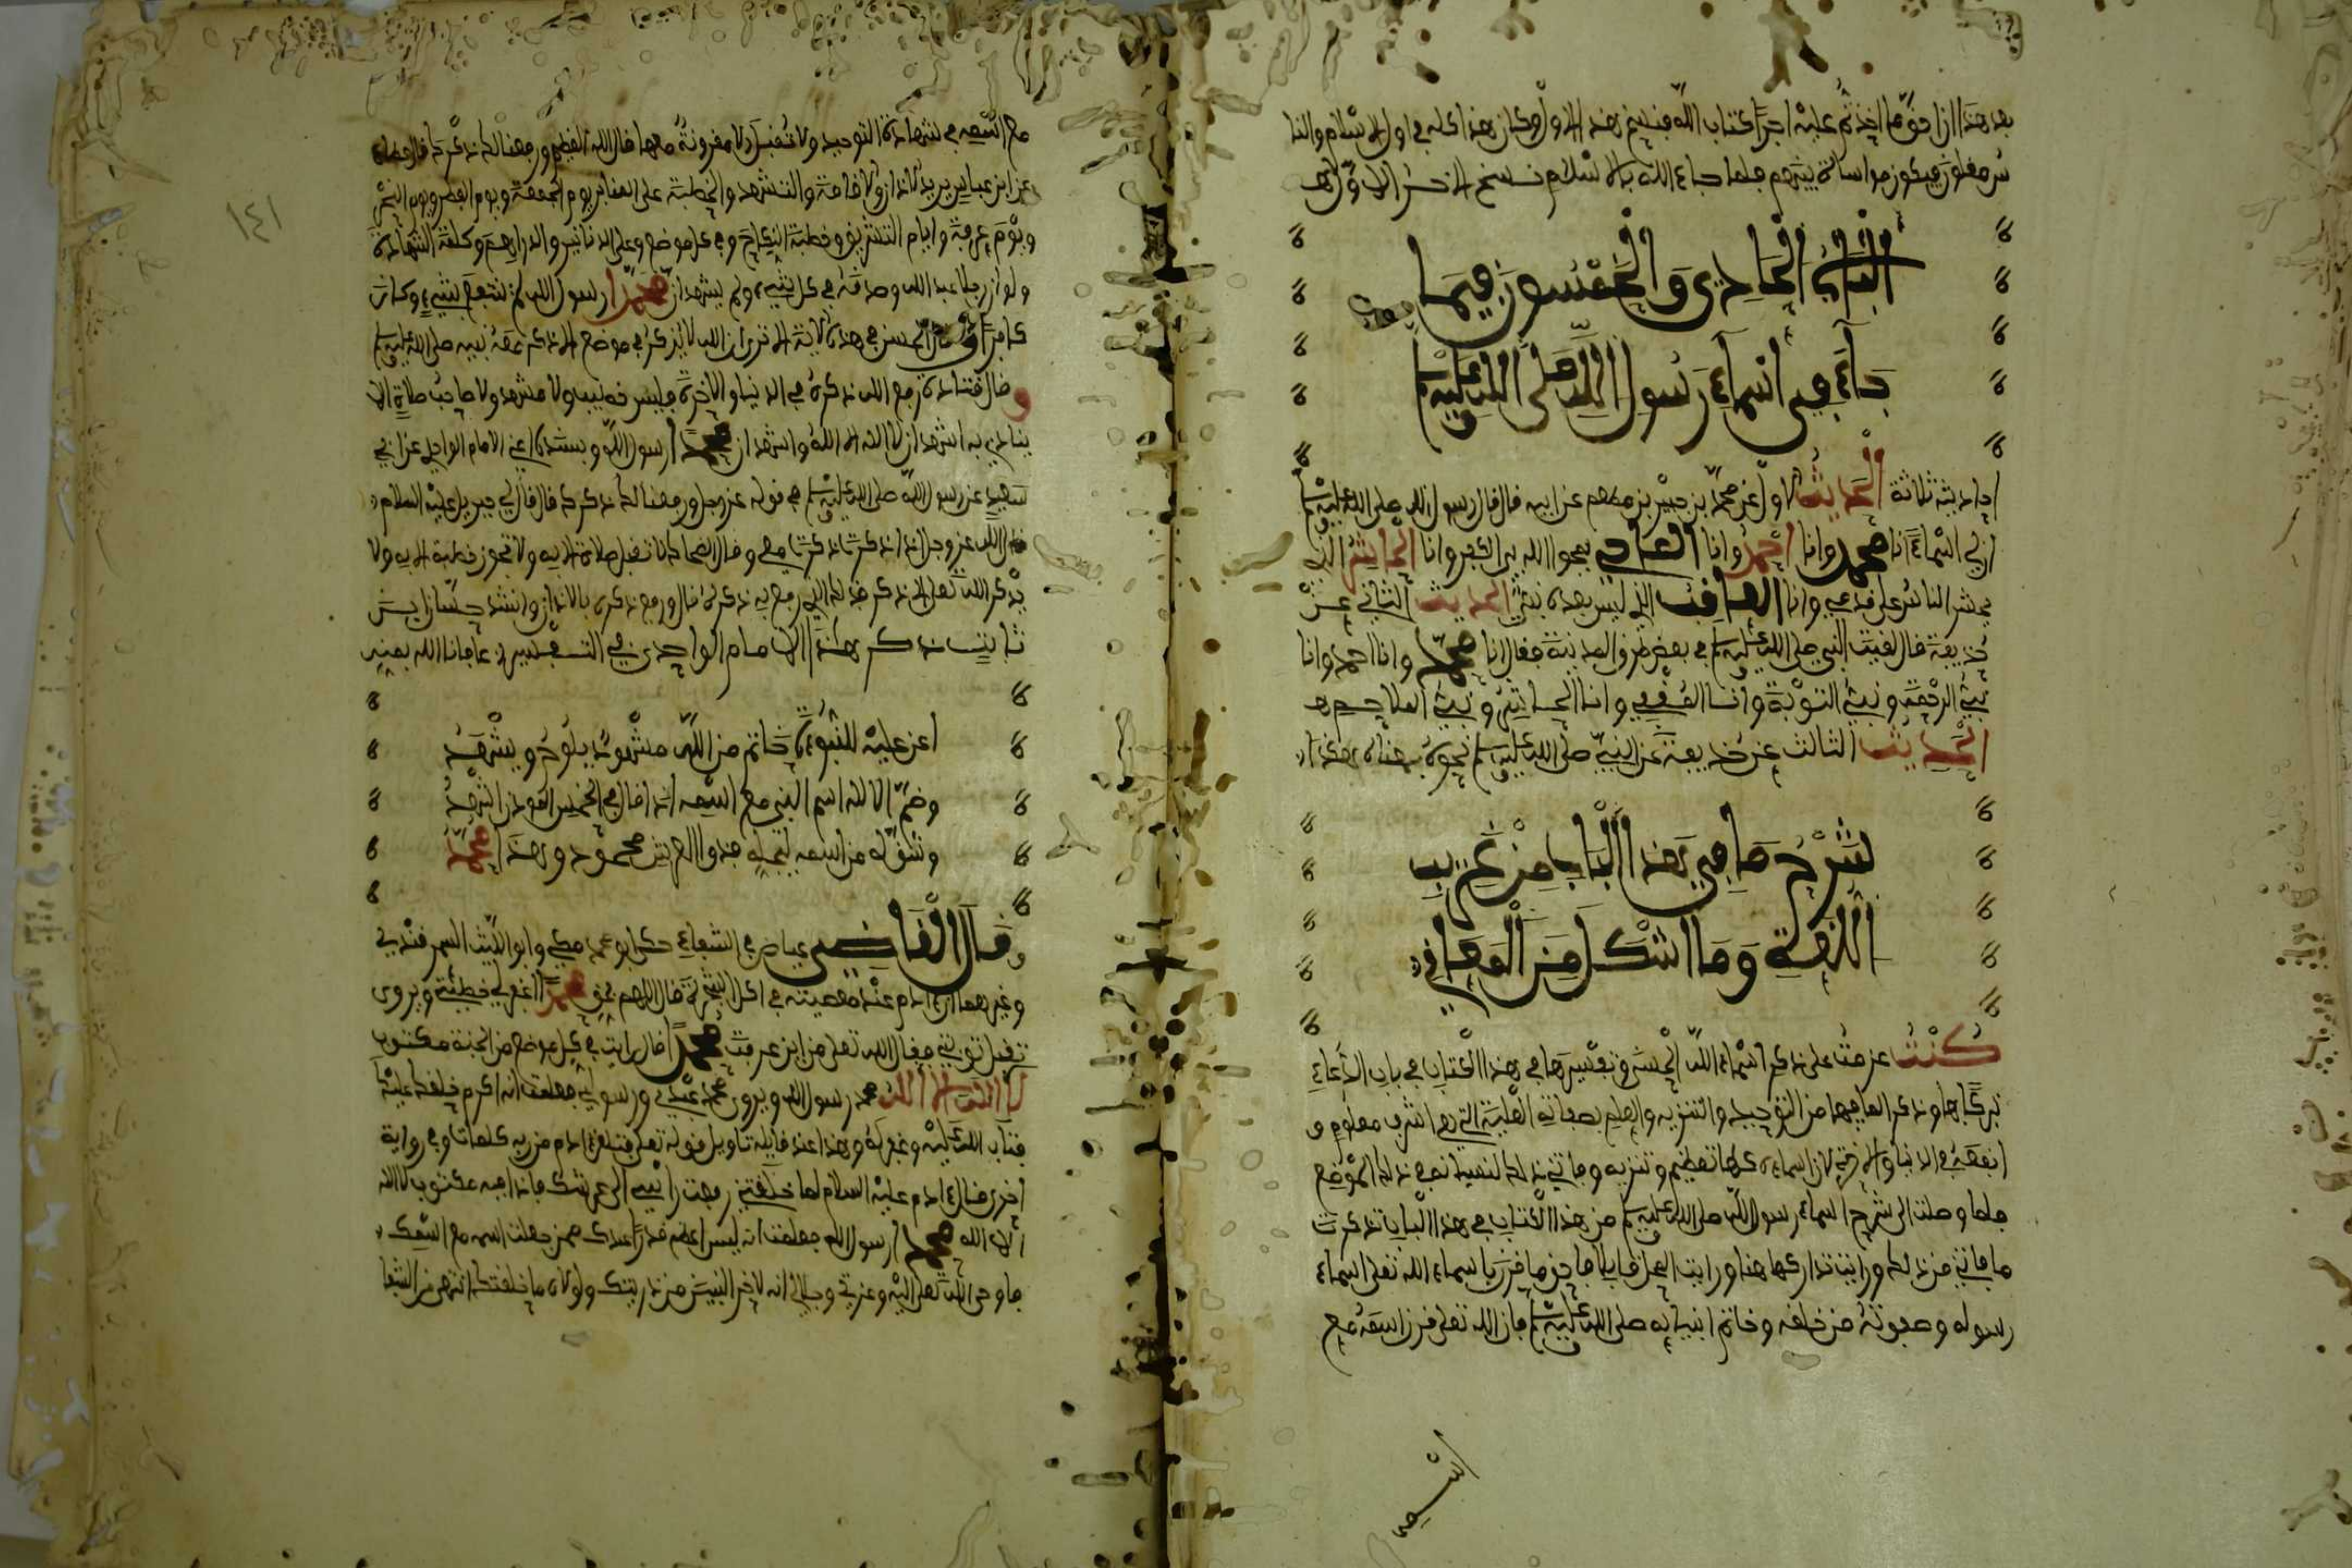 بعد هذا ان احق ما اخذتم عليه اجرا كتاب الله فنسخ هذا الاول وكان هذا كله في اول الاسلام والنا
س مقلون فيكون مواساة بينهم فلما جاء الله بالاسلام نسخ الاخر الاول
الباب الحادي والخمسون فيما
جاء في اسماء رسول الله صلى الله عليه وسلم
احاديثه ثلاثة الحديث الاول عن محمد بن جبير بن مطعم عن ابيه قال قال رسول الله صلى الله عليه وسلم
ان لي اسماء انا محمد وانا احمد وانا الماحي يمحوا الله بي الكفر وانا الحاشر الذي
يحشر الناس على قدمي وانا العاقب الذي ليس بعده نبي الحديث الثاني عن
حذيفة قال لقيت النبي صلى الله عليه وسلم في بعض طرق المدينة فقال انا محمد وانا احمد وانا
نبي الرحمة ونبي التوبة وانا المقفي وانا الحاشر ونبي الملاحم
الحديث الثالث عن حذيفة عن النبي صلى الله عليه وسلم نحوه بمعناه هذا
شرح ما في هذا الباب من غريب
اللغة وما اشكل من المعاني
كنت عزمت على ذكر اسماء الله الحسنى وتفسيرها في هذا الكتاب في باب الدعاء
تبركا بها وذكر لما فيها من التوحيد والتنزيه والعلم بصفاته العلية التي هي اشرف معلوم و
انفعه في الدنيا والاخرة لان اسماءه كلها تعظيم وتنزيه وفاتني ذلك لنسيان في ذلك الموضع
فلما وصلت الى شرح اسماء رسول الله صلى الله عليه وسلم من هذا الكتاب في هذا الباب تذكرت
ما فاتني من ذلك ورايت تداركها هنا ورايت المحل قابلا فاحق ما قرن باسماء الله تعلى اسماء
رسوله وصفوته من خلقه وخاتم انبيايه صلى الله عليه وسلم فان الله تعلى قرن اسمه مع
اسمه
١٤١
مع اسمه في شهادة التوحيد ولا تقبل الا مقرونة معها قال الله العظيم ورفعنا لك ذكرك قال عطاء
عن ابن عباس يريد الاذان والاقامة والتشهد والخطبة على المنابر يوم الجمعة ويوم الفطر ويوم النحر
ويوم عرفة وايام التشريق وخطبة النكاح وفي كل موضع وعلى الدنانير والدراهم وكلمة الشهادة
ولو ان رجلا عبد الله وصدقه في كل شيء ولم يشهد ان محمدا رسول الله لم ينتفع بشيء وكان
كافرا وقال الحسن في هذه الاية الا ترى ان الله لا يذكر في موضع الا ذكر معه نبيه صلى الله عليه وسلم
وقال قتادة رفع الله ذكره في الدنيا والاخرة فليس خطيب ولا متشهد ولا صاحب صلاة الا
ينادي به اشهد ان لا اله الا الله واشهد ان محمدا رسول الله وبسنده اعني الامام الواحدي عن ابي
سعيد عن رسول الله صلى الله عليه وسلم في قوله عز وجل ورفعنا لك ذكرك قال قال لي جبريل عليه السلام
قال الله عز وجل اذا ذكرت ذكرت معي وقال الضحاك لا تقبل صلاة الا به ولا تجوز خطبة الا به ولا
يذكر الله تعلى الا ذكر فذلك الذي رفع به ذكره قال ورفع ذكره بالاذان وانشد حسان ابن
ثابت ذكر هذا الامام الواحدي في التفسير عافانا الله بمنه
اغر عليه للنبوءة خاتم من الله مشهود يلوح ويشهد
وضم الاله اسم النبي مع اسمه اذا قال في الخمس الموذن اشهد
وشق له من اسمه ليجله فذوا العرش محمود وهذا محمد
وقال القاضي عياض في الشفاء حكى ابو محمد مكي وابو الليث السمرقندي
وغيرهما ان ادم عند معصيته في اكل الشجرة قال اللهم بحق محمد اغفر لي خطيئتي ويروى
تقبل توبتي فقال الله تعلى من اين عرفت محمدا قال رايت في كل موضع من الجنة مكتوب
لا اله الا الله محمد رسول الله ويروى محمد عبدي ورسولي فعلمت انه اكرم خلقك عليك
فتاب الله عليه وغفر له وهذا عند قايله تاويل قوله تعلى فتلقى ادم من ربه كلمات وفي رواية
اخرى فقال ادم عليه السلام لما خلقتني رفعت راسي الى عرشك فاذا فيه مكتوب لا اله
الا الله محمد رسول الله فعلمت انه ليس اعظم قدرا عندك ممن جعلت اسمه مع اسمك
فاوحى الله تعلى اليه وعزتي وجلالي انه لاخر النبيين من ذريتك ولولاه ما خلقتك انتهى من الشفا